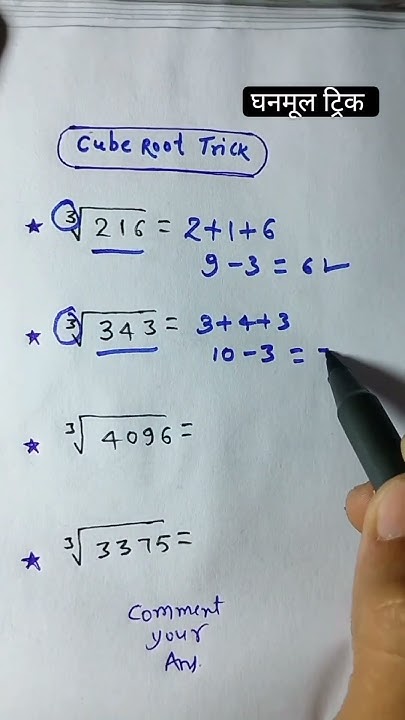 घनमूल ट्रिक
Cube Root Trick
★ ∛216 = 2+1+6
9-3 = 6 ✓
★ ∛343 = 3+4+3
10-3 =
★ ∛4096 =
★ ∛3375 =
Comment
your
Ans.